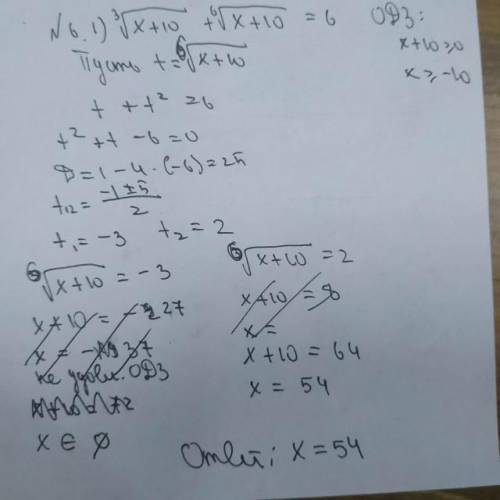 №6. 1) ∛(x+10) + ⁶√(x+10) = 6
ОДЗ:
x+10 ≥ 0
x ≥ -10
Пусть t = ⁶√(x+10)
t + t² = 6
t² + t - 6 = 0
D = 1 - 4 · (-6) = 25
t₁₂ = (-1 ± 5)/2
t₁ = -3 t₂ = 2
⁶√(x+10) = -3
x+10 = -27
x = -37
не удовл. ОДЗ
x ∈ ∅
⁶√(x+10) = 2
x+10 = 8
x =
x+10 = 64
x = 54
Ответ: x = 54